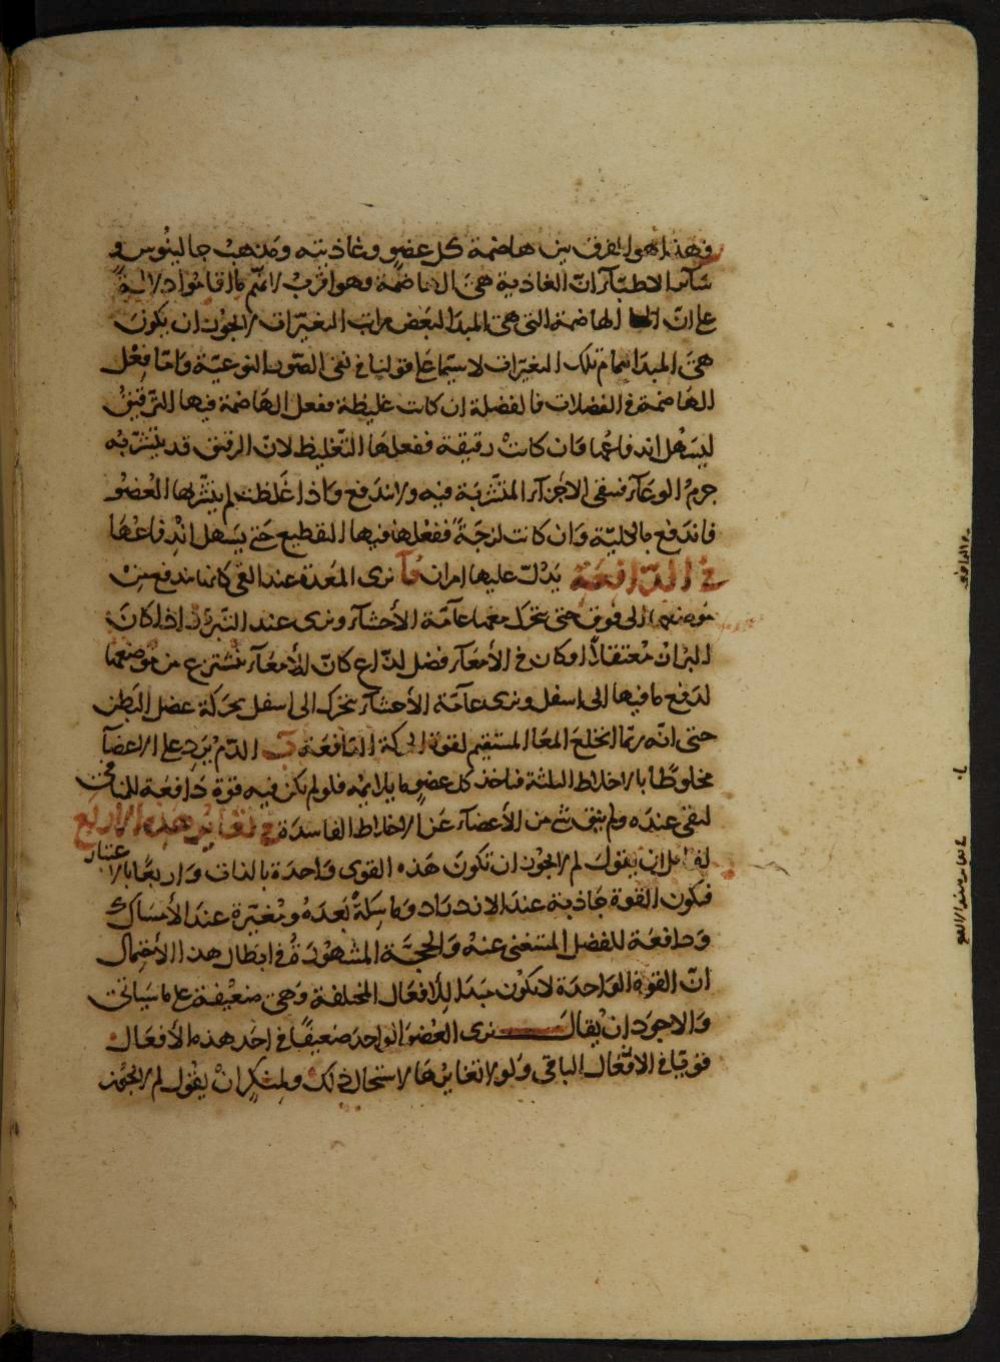 فهذا هو الفرق بين هاضمة كل عضو وغاذيته ومذهب جالينوس و
سائر الاطباء ان الغاذية هي الهاضمة وهو اقرب لانهم ما اقاموا دلالة
على ان الهاضمة التي هي المبدأ لبعض مراتب التغيرات لا يجوز ان يكون
هي المبدأ لتمام تلك التغيرات لا سيما على قولنا في نفي الصور النوعية واما فعل
الهاضمة في الفضلات فالفضلة ان كانت غليظة ففعل الهاضمة فيها الترقيق
ليسهل اندفاعها وان كانت رقيقة ففعلها التغليظ لان الرقيق قد يتشربه
جرم الوعاء فتبقى الاجزاء المتشربة فيه ولا تندفع واذا غلظت لم يتشربها العضو
فاندفع بالكلية وان كانت لزجة ففعلها فيها التقطيع حتى يسهل اندفاعها
في الدافعة يدل عليها امران آ نرى المعدة عند القي كانها تندفع من
موضعها الى فوق حتى يتحرك معها عامة الأحشاء ونرى عند التبرز اذا كان
البراز معتقلا او كان في الأمعاء فضل لذاع كان الأمعاء تنتزع من موضعها
لدفع ما فيها الى اسفل ونرى عامة الأحشاء تتحرك الى اسفل بحركة عضل البطن
حتى انه ربما انخلع المعا المستقيم لقوة الحركة الدافعة ب الدم يرد على الاعضاء
مخلوطا بالاخلاط الثلثة فياخذ كل عضو ما يلائمه فلو لم يكن فيه قوة دافعة للمنافي
لبقى عنده ولم ينق شئ من الأعضاء عن الاخلاط الفاسدة في تغاير هذه الاربع
لقائل ان يقول لم لا يجوز ان تكون هذه القوى واحدة بالذات واربعا بالاعتبار
فيكون القوة جاذبة عند الازدراد وماسكة بعده ومغيرة عند الأمساك
ودافعة للفضل المستغنى عنه والحجة المشهورة في ابطال هذا الأحتمال
ان القوة الواحدة لا تكون مبدأ للأفعال المختلفة وهي ضعيفة على ما سياتى
والاجود ان يقال نرى العضو الواحد ضعيفا في احد هذه الأفعال
قويا في الافعال الباقي ولولا تغايرها لاستحال ذلك ولمنكر ان يقول لم لا يجوز